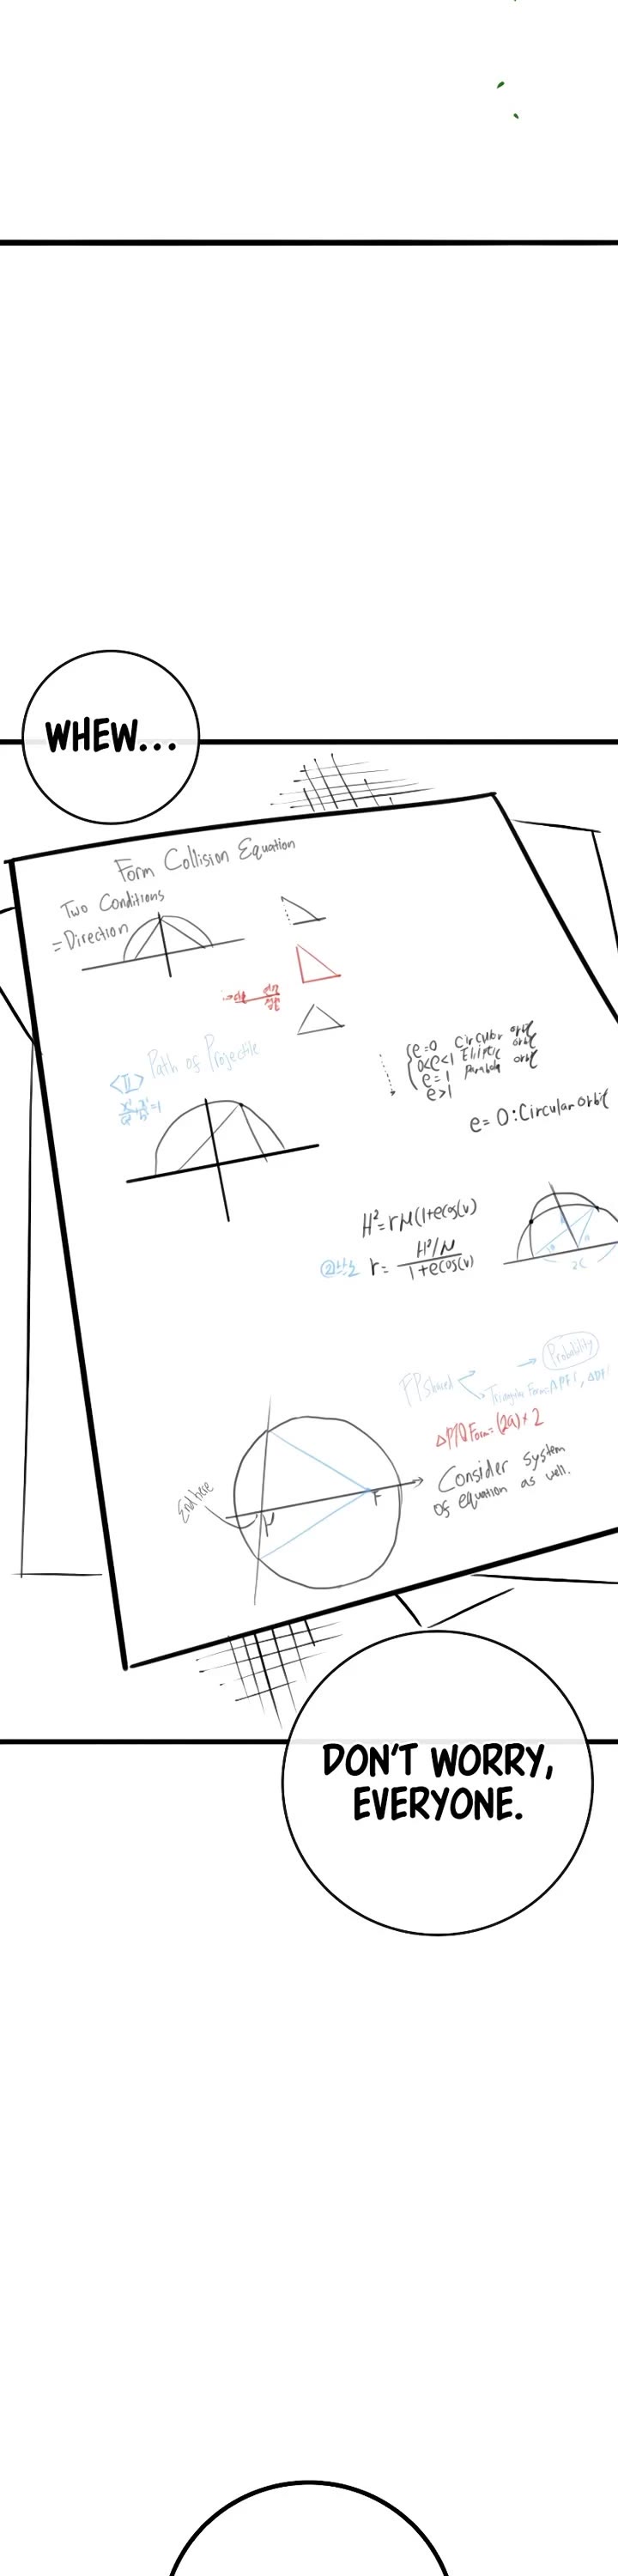 WHEW...
Form Collision Equation
Two Conditions
=Direction
<II> Path of Projectile
e=0 Circular orbit
0<e<1 Eliptic orbit
e=1 Parabola orbit
e>1
e=0:Circular orbit
H²=rμ(1+ecos(v)
② r= H²/μ
1+ecos(v)
2C
FP shared
Probability
Consider system
of equation as well.
End here
μ
F
DON'T WORRY,
EVERYONE.